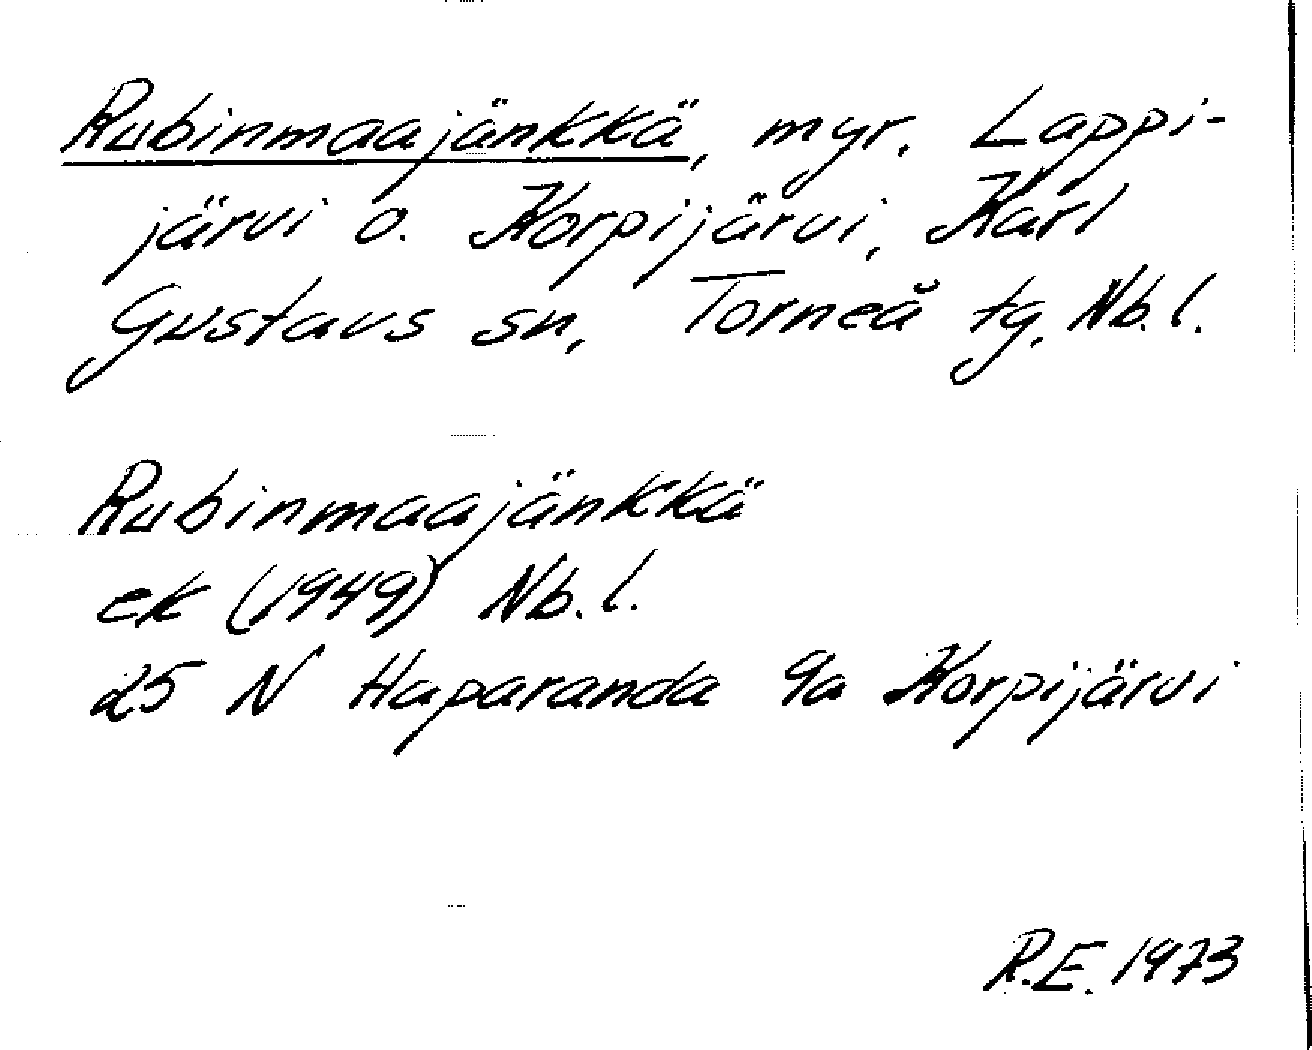 Rubinmaajänkkä, myr. Lappi-
järvi o. Korpijärvi, Karl
Gustavs sn, Torneå tg, Nb.l.
Rubinmaajänkkä
ek (1949) Nb.l.
25 N Haparanda 9a Korpijärvi
R.E. 1973